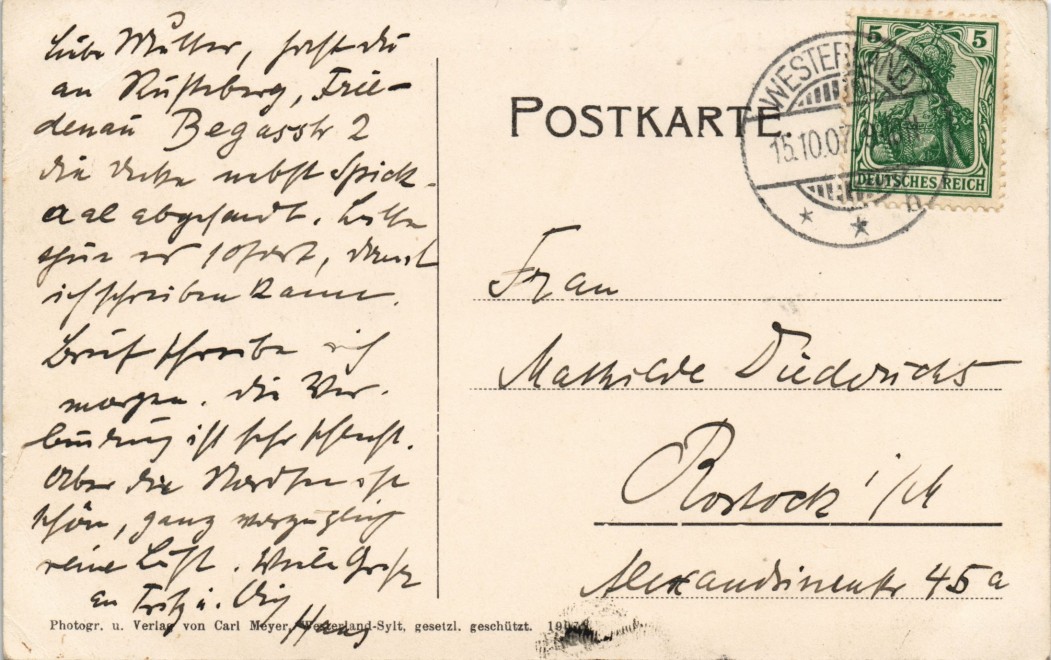 Liebe Mutter, hast du
an Rustsberg, Frie-
denau Begasstr 2
die Decke nebst Spick-
aal abgesandt. Bitte
thue es sofort, damit
ich schreiben kann.
Brief schreibe ich
morgen. Die Ver-
bindung ist sehr schlecht.
Aber die Nordsee ist
schön, ganz vorzüglich
reine Luft. Viele Grüße
an Fritz u.
Hans
Photogr. u. Verlag von Carl Meyer, Westerland-Sylt, gesetzl. geschützt.
POSTKARTE
WESTERLAND
15.10.07
5 5
DEUTSCHES REICH
Frau
Mathilde Diederichs
Rostock i/M
Alexandrinenstr 45a